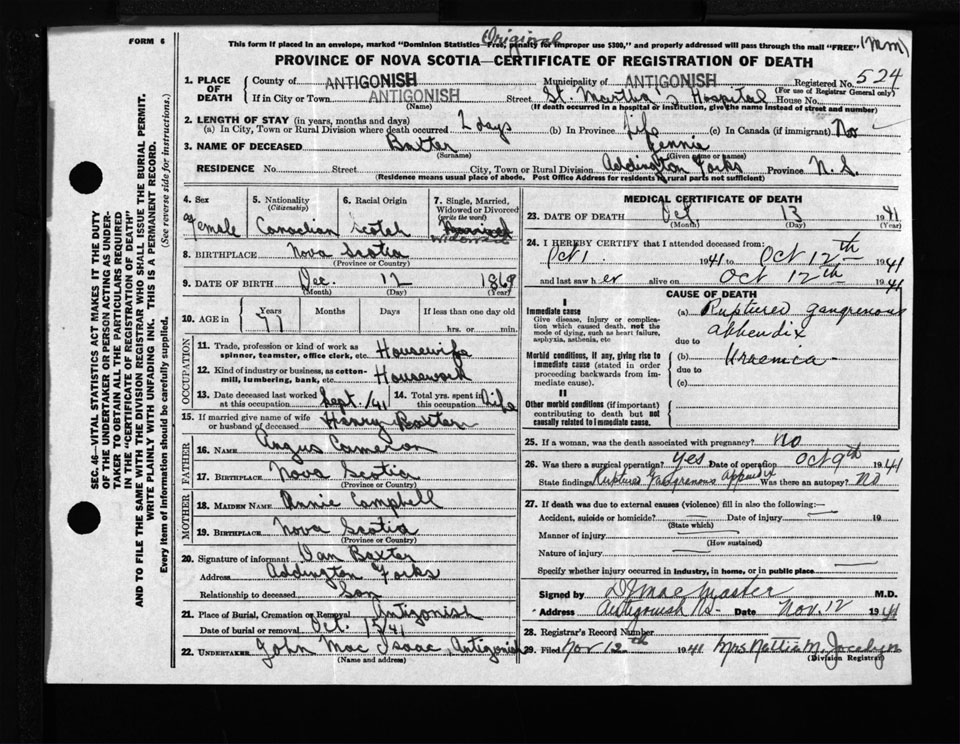 FORM 6
Original
This form if placed in an envelope, marked "Dominion Statistics—Free, penalty for improper use $300," and properly addressed will pass through the mail "FREE"
PROVINCE OF NOVA SCOTIA—CERTIFICATE OF REGISTRATION OF DEATH
1. PLACE OF DEATH County of ANTIGONISH Municipality of ANTIGONISH Registered No. 524
(For use of Registrar General only)
If in City or Town ANTIGONISH Street St. Martha's Hospital House No.
(Name) (If death occurred in a hospital or institution, give the name instead of street and number)
2. LENGTH OF STAY (in years, months and days)
(a) In City, Town or Rural Division where death occurred 2 days (b) In Province Life (c) In Canada (if immigrant) No
3. NAME OF DECEASED Baxter Jennie
(Surname) (Given name or names)
RESIDENCE No. Street City, Town or Rural Division Addington Forks Province N.S.
(Residence means usual place of abode. Post Office Address for residents of rural parts not sufficient)
4. Sex Female
5. Nationality (Citizenship) Canadian
6. Racial Origin Scotch
7. Single, Married, Widowed or Divorced (write the word) Married Widowed
8. BIRTHPLACE Nova Scotia
(Province or Country)
9. DATE OF BIRTH Dec. 12 1869
(Month) (Day) (Year)
10. AGE in Years 77 Months Days If less than one day old
hrs. or min.
OCCUPATION
11. Trade, profession or kind of work as spinner, teamster, office clerk, etc. Housewife
12. Kind of industry or business, as cotton-mill, lumbering, bank, etc. Housework
13. Date deceased last worked at this occupation Sept. /41 14. Total yrs. spent in this occupation Life
15. If married give name of wife or husband of deceased Henry Baxter
FATHER
16. NAME Angus Cameron
17. BIRTHPLACE Nova Scotia
(Province or Country)
MOTHER
18. MAIDEN NAME Annie Campbell
19. BIRTHPLACE Nova Scotia
(Province or Country)
20. Signature of informant Dan Baxter
Address Addington Forks
Relationship to deceased Son
21. Place of Burial, Cremation or Removal Antigonish
Date of burial or removal Oct. 15/41
22. UNDERTAKER John Mac Isaac, Antigonish
(Name and address)
MEDICAL CERTIFICATE OF DEATH
23. DATE OF DEATH Oct 13 1941
(Month) (Day) (Year)
24. I HEREBY CERTIFY that I attended deceased from:
Oct 1 1941 to Oct 12th 1941
and last saw her alive on Oct 12th 1941
CAUSE OF DEATH
I
Immediate cause
Give disease, injury or complication which caused death, not the mode of dying, such as heart failure, asphyxia, asthenia, etc
(a) Ruptured gangrenous appendix
due to
Morbid conditions, if any, giving rise to immediate cause (stated in order proceeding backwards from immediate cause).
(b) Uraemica
due to
(c)
II
Other morbid conditions (if important) contributing to death but not causally related to immediate cause.
25. If a woman, was the death associated with pregnancy? no
26. Was there a surgical operation? yes Date of operation Oct 9th 1941
State findings Ruptured Gangrenous Appendix Was there an autopsy? No
27. If death was due to external causes (violence) fill in also the following:—
Accident, suicide or homicide? Date of injury 19
(State which)
Manner of injury
(How sustained)
Nature of injury
Specify whether injury occurred in industry, in home, or in public place
Signed by MacMaster M.D.
Address Antigonish NS. Date Nov. 12 1941
28. Registrar's Record Number
29. Filed Nov 12th 1941 Mrs M. Jocelyn
(Division Registrar)
SEC. 46—VITAL STATISTICS ACT MAKES IT THE DUTY
OF THE UNDERTAKER OR PERSON ACTING AS UNDER-
TAKER TO OBTAIN ALL THE PARTICULARS REQUIRED
IN THE "CERTIFICATE OF REGISTRATION OF DEATH"
AND TO FILE THE SAME WITH THE DIVISION REGISTRAR WHO SHALL ISSUE THE BURIAL PERMIT.
WRITE PLAINLY WITH UNFADING INK. THIS IS A PERMANENT RECORD.
Every item of information should be carefully supplied. (See reverse side for instructions.)